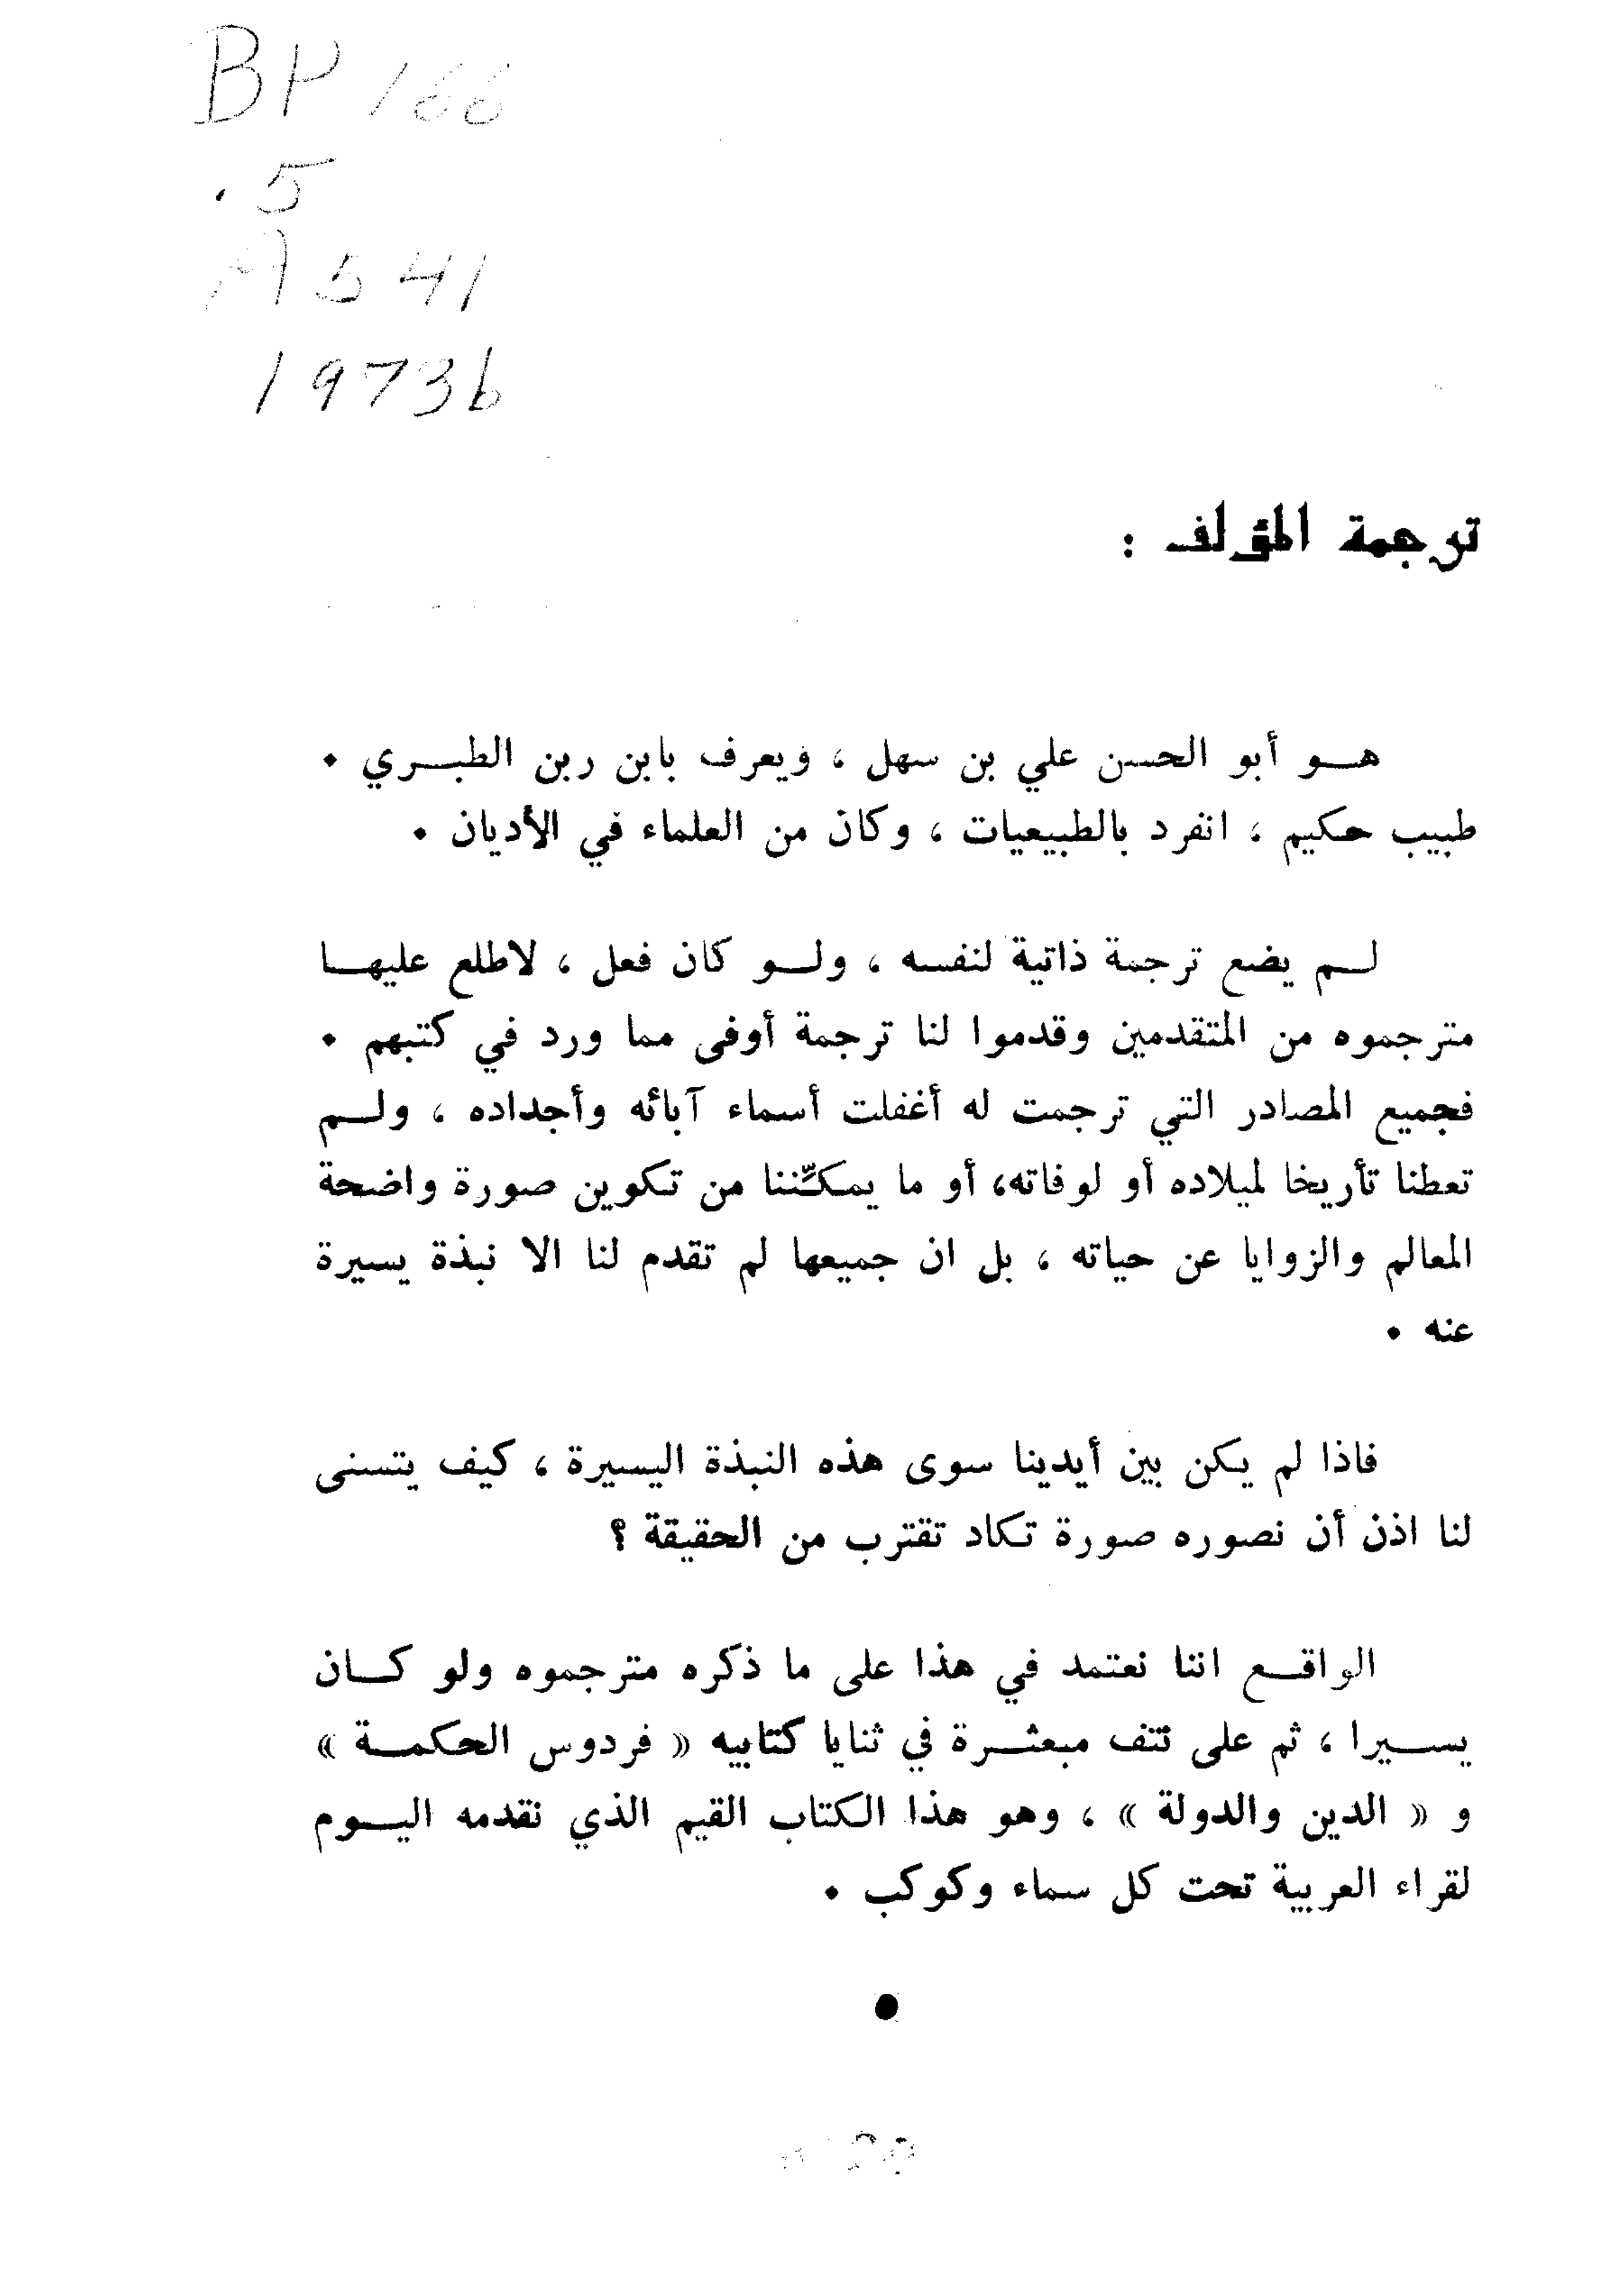 BP 166
.5
A541
1973b
ترجمة المؤلف :
هو أبو الحسن علي بن سهل ، ويعرف بابن ربن الطبري .
طبيب حكيم ، انفرد بالطبيعيات ، وكان من العلماء في الأديان .
لم يضع ترجمة ذاتية لنفسه ، ولو كان فعل ، لاطلع عليها
مترجموه من المتقدمين وقدموا لنا ترجمة أوفى مما ورد في كتبهم .
فجميع المصادر التي ترجمت له أغفلت أسماء آبائه وأجداده ، ولم
تعطنا تأريخا لميلاده أو لوفاته، أو ما يمكّننا من تكوين صورة واضحة
المعالم والزوايا عن حياته ، بل ان جميعها لم تقدم لنا الا نبذة يسيرة
عنه .
فاذا لم يكن بين أيدينا سوى هذه النبذة اليسيرة ، كيف يتسنى
لنا اذن أن نصوره صورة تكاد تقترب من الحقيقة ؟
الواقع اننا نعتمد في هذا على ما ذكره مترجموه ولو كان
يسيرا ، ثم على نتف مبعثرة في ثنايا كتابيه « فردوس الحكمة »
و « الدين والدولة » ، وهو هذا الكتاب القيم الذي نقدمه اليوم
لقراء العربية تحت كل سماء وكوكب .